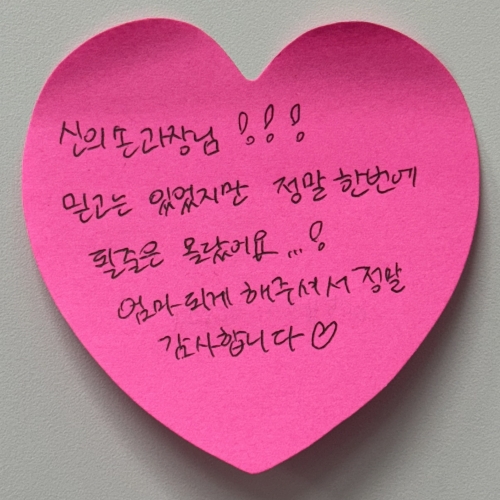 신의 손 과장님 !!!
믿고는 있었지만 정말 한번에
될줄은 몰랐어요...!
엄마 되게 해주셔서 정말
감사합니다♡